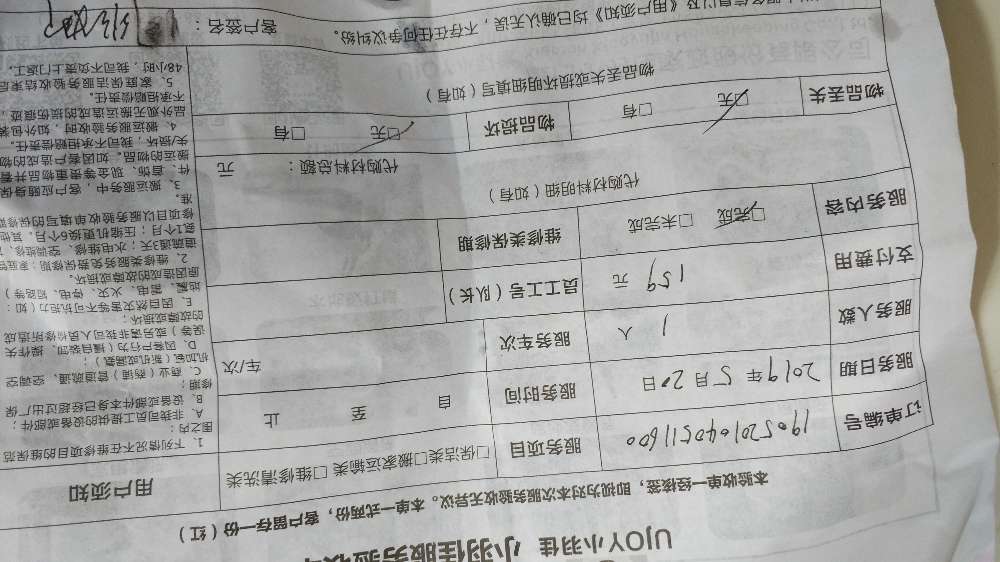 UJOY小羽佳 小羽佳服务验收单
本验收单一经核签，即视为对本次服务验收无异议。本单一式两份，客户留存一份（红）
订单编号 190520104051600 服务项目 □保洁类□搬家运输类□维修清洗类
服务日期 2019年5月20日 服务时间 自 至 止
服务人数 1 人 服务车次 车/次
支付费用 159 元 员工工号（队长）
服务内容 □完成 □未完成 维修类保修期
代购材料明细（如有） 代购材料总额： 元
物品丢失 □无 □有 物品损坏 □无 □有
物品丢失或损坏明细填写（如有）
《用户须知》均已确认无误，不存在任何争议纠纷。 客户签名：
用户须知
1、下列情况不在维修项目的维保范
围之内：
A、非我司员工提供的设备或部件；
B、设备或部件本身已经超过出厂保
修期；
C、商业（商铺）管道疏通、空调空
机加氟（新机或漏氟）；
D、因客户行为（擅自装卸、操作失
误等）或另请非我司人员检修所造成
的故障或损坏；
E、因自然灾害等不可抗力（如：
地震、雷电、火灾、停电、短路等）
原因造成的故障或损坏。
2、维修类服务免费保修期：家庭管
道疏通3天；水电维修、空调维修、
氨1个月；压缩机更换6个月。其他
修项目以服务验收单填写的保修期
准。
3、搬运服务中，客户应随身保
件、首饰、现金等贵重物品并看
搬运的物品。如因客户造成的物
失/损坏，我司不承担赔偿责任。
4、搬运服务验收时，如外包装
品外观无搬运造成的损伤痕迹，
不承担赔偿责任。
5、家庭保洁服务验收结束后
48小时，我司不负责上门返工。